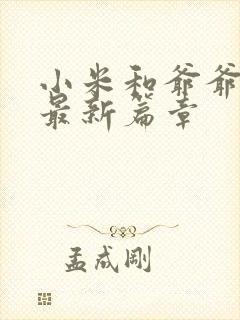 小米和爷爷
最新篇章
孟成刚